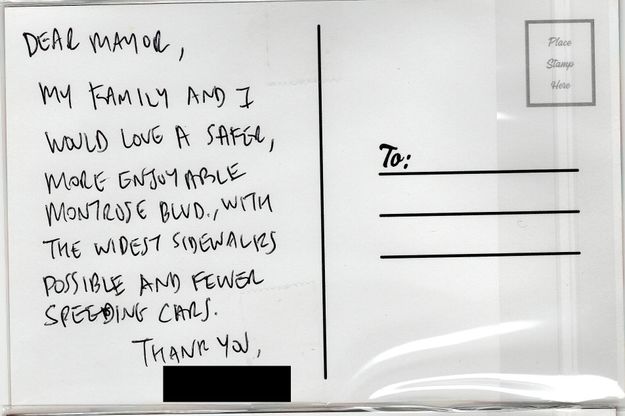 DEAR MAYOR,
MY FAMILY AND I
WOULD LOVE A SAFER,
MORE ENJOYABLE
MONTROSE BLVD., WITH
THE WIDEST SIDEWALKS
POSSIBLE AND FEWER
SPEEDING CARS.
THANK YOU,
Place
Stamp
Here
To: